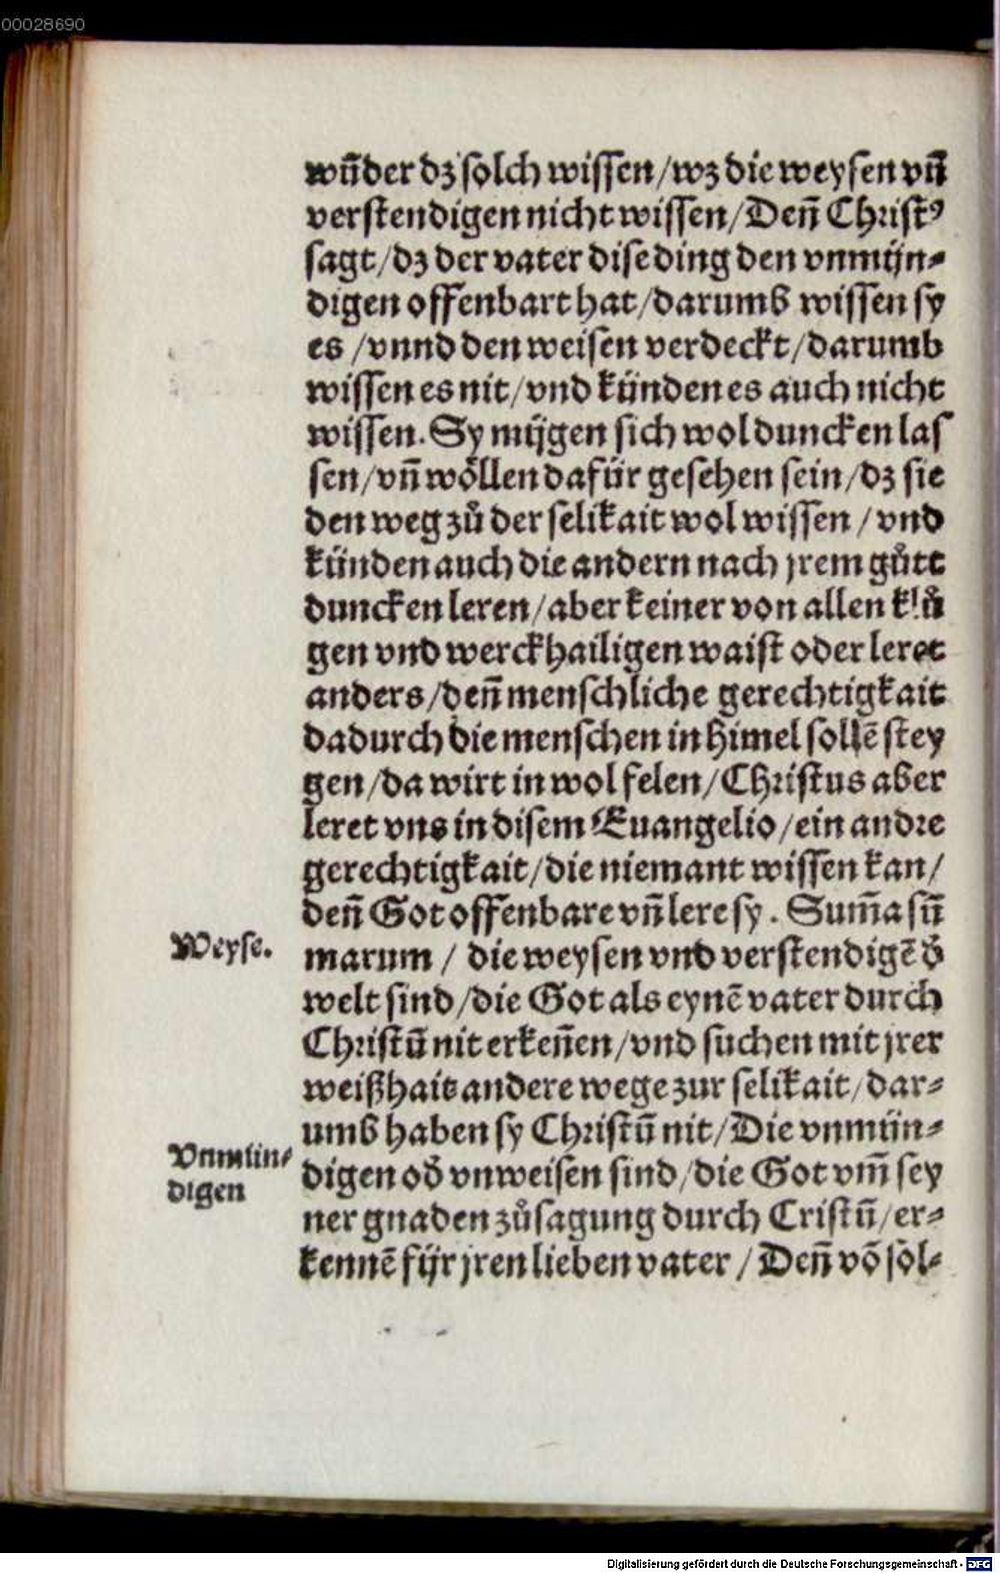 00028690
wūder dz solch wissen/wz die weysen vñ
verstendigen nicht wissen/Deñ Christꝰ
sagt/dz der vater dise ding den vnmün⸗
digen offenbart hat/darumb wissen sy
es /vnnd den weisen verdeckt/darumb
wissen es nit/vnd künden es auch nicht
wissen. Sy mügen sich wol duncken las
sen/vñ wöllen dafür gesehen sein/dz sie
den weg zů der selikait wol wissen /vnd
künden auch die andern nach jrem gůtt
duncken leren/aber keiner von allen klů
gen vnd werckhailigen waist oder leret
anders/deñ menschliche gerechtigkait
dadurch die menschen in himel sollē stey
gen/da wirt in wol felen/Christus aber
leret vns in disem Euangelio/ein andre
gerechtigkait/die niemant wissen kan/
deñ Got offenbare vñ lere sy. Sum̄a sū
Weyse.
marum / die weysen vnd verstendigē d̄
welt sind/die Got als eynē vater durch
Christū nit erkeñen/vnd suchen mit jrer
weißhait andere wege zur selikait/dar⸗
umb haben sy Christū nit/Die vnmün⸗
Vnmün⸗
digen
digen od̄ vnweisen sind/die Got vm̄ sey
ner gnaden zůsagung durch Cristū/er⸗
kennē für jren lieben vater / Deñ vō söl⸗
Digitalisierung gefördert durch die Deutsche Forschungsgemeinschaft - DFG